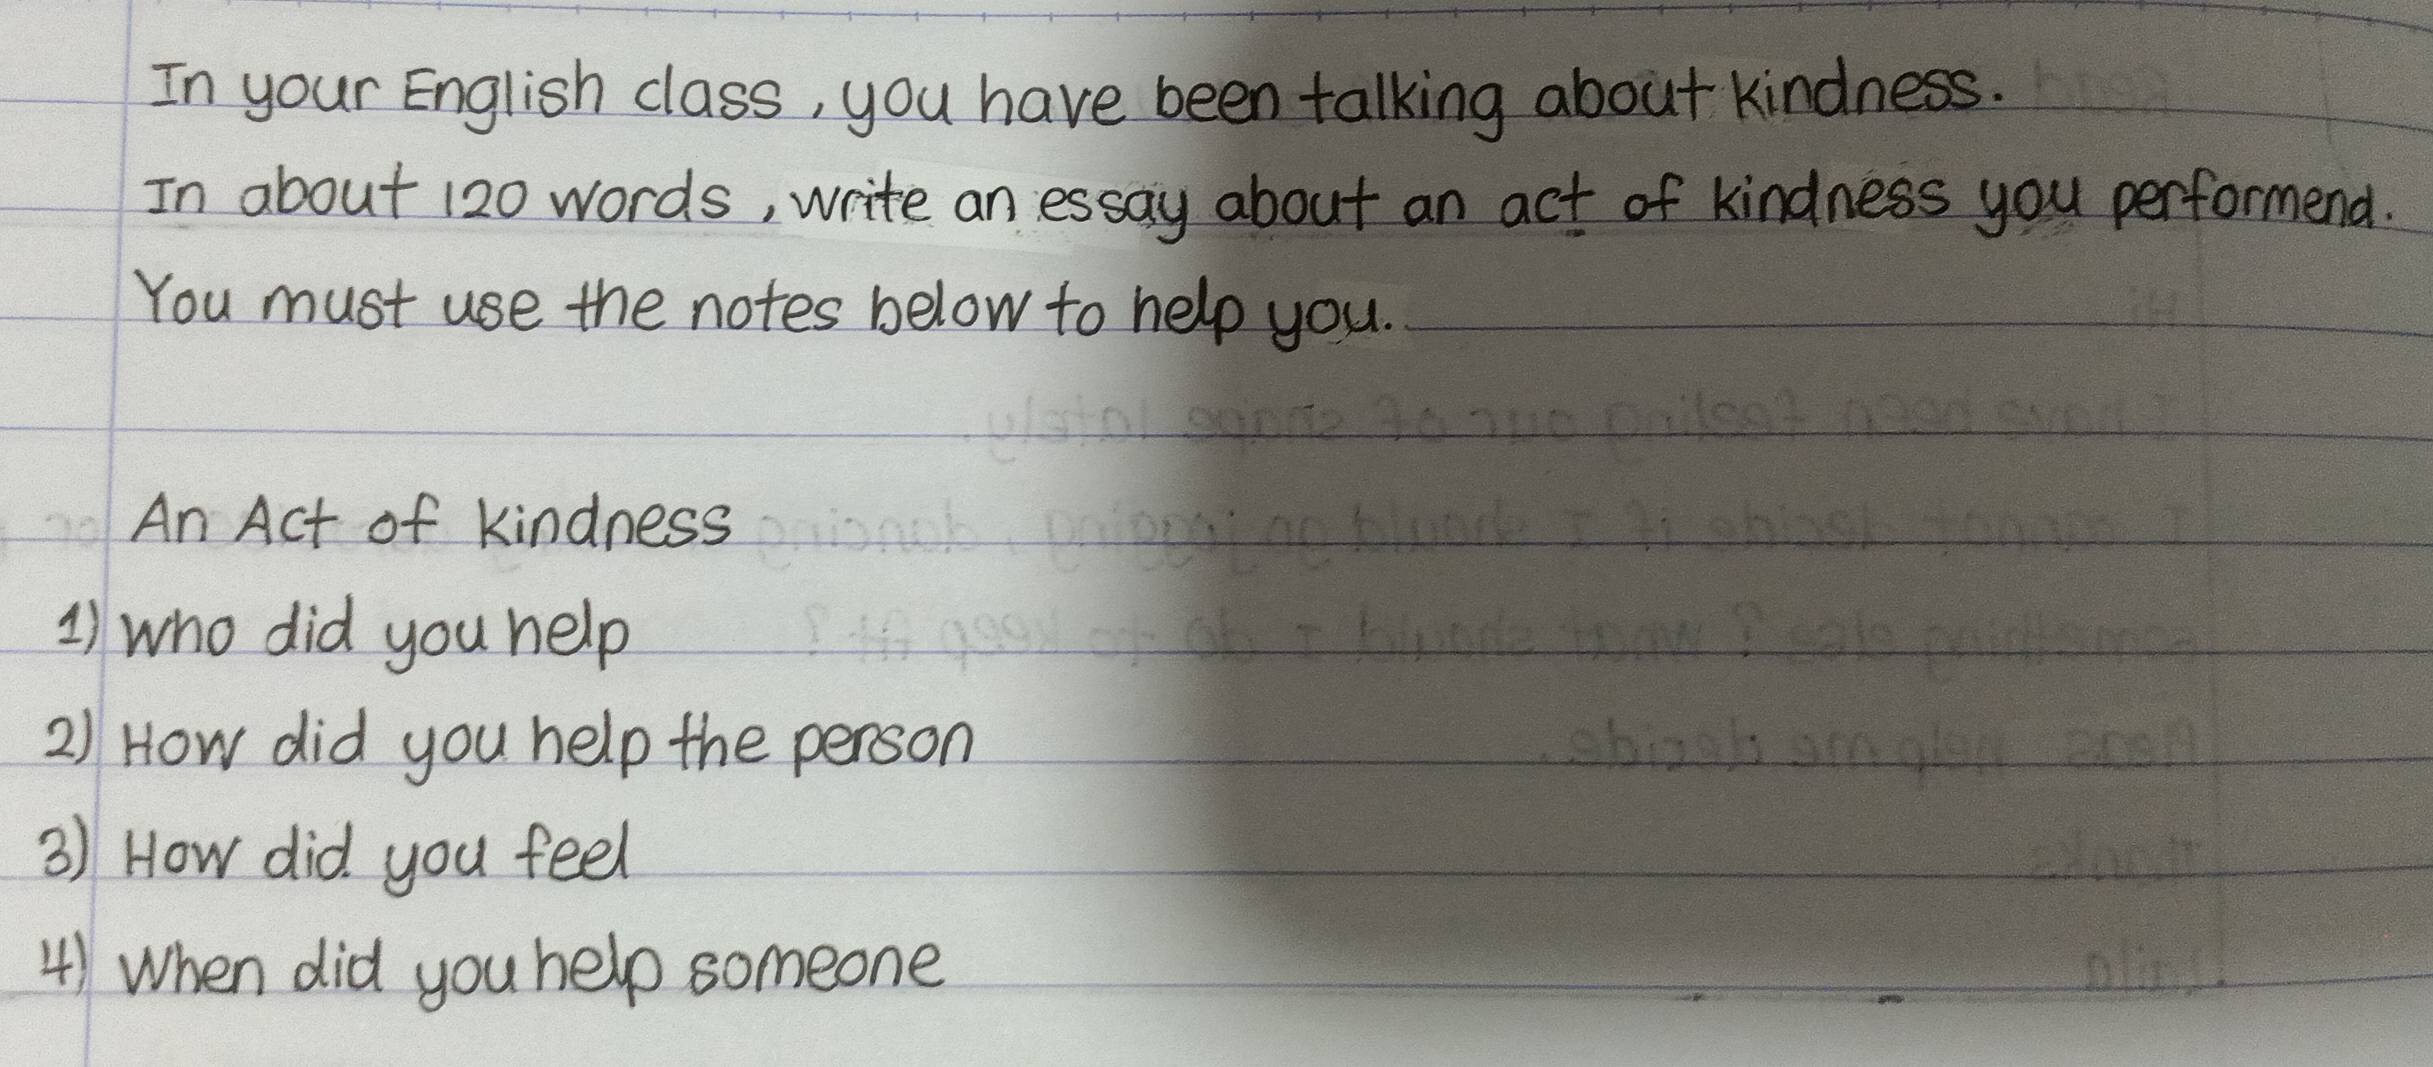 In your English class, you have been talking about kindness.
In about 120 words, write an essay about an act of kindness you performend.
You must use the notes below to help you.
An Act of kindness
1) Who did you help
2) How did you help the person
3) How did you feel
4) When did you help someone